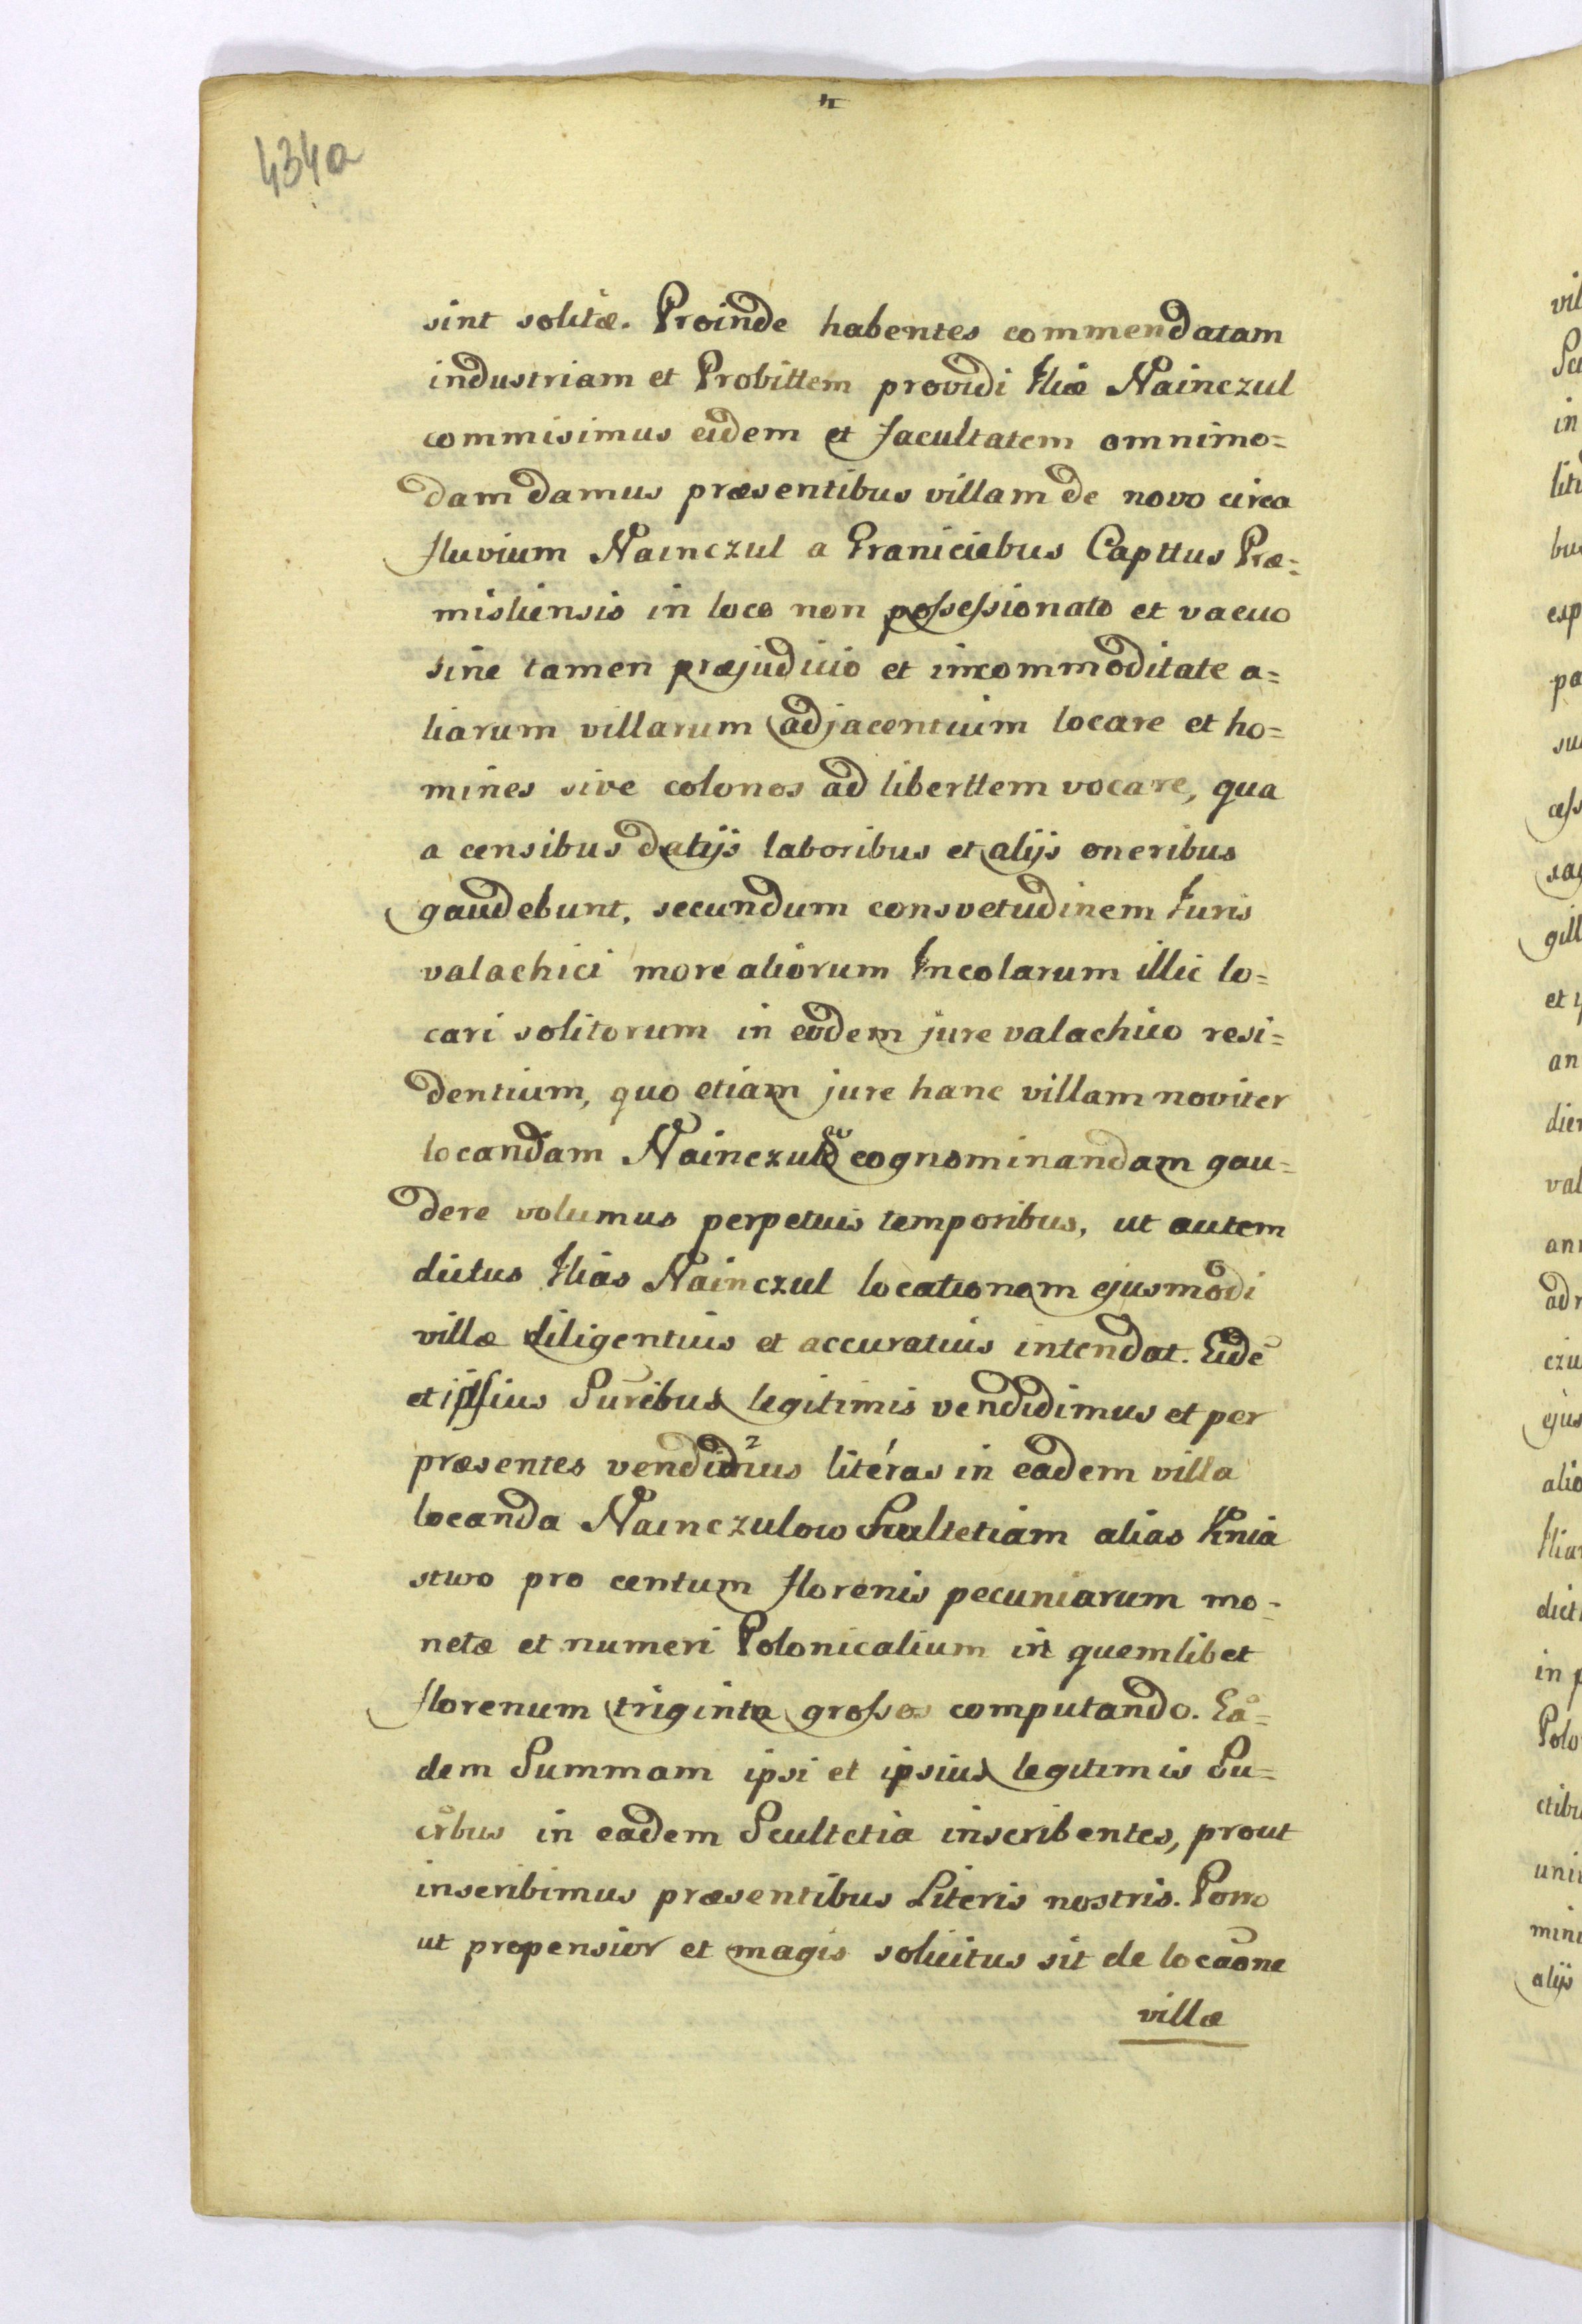 434a
sint solitæ. Proinde habentes commendatam
industriam et Probittem providi Iliæ Nainczul
commisimus eidem et facultatem omnimo=
dam damus præsentibus villam de novo circa
fluvium Nainczul a Graniciebus Capttus Præ=
misliensis in loco non possessionato et vacuo
sine tamen præjudicio et incommoditate a=
liarum villarum adjacentium locare et ho=
mines sive colonos ad liberttem vocare, qua
a censibus datijs laboribus et alijs oneribus
gaudebunt, secundum consvetudinem Iuris
valachici more aliorum Incolarum illic lo=
cari solitorum in eodem jure valachico resi=
dentium, quo etiam jure hanc villam noviter
locandam cognominandam gau=
dere volumus perpetuis temporibus, ut autem
dictus Ilias Nainczul locationem ejusmodi
villæ diligentius et accuratius intendat. Eidē
et ipsius Suribus legitimis vendidimus et per
præsentes literas in eadem villa
locanda Nainczulow Scultetiam alias Knia
stwo pro centum florenis pecuniarum mo=
netæ et numeri Polonicalium in quemlibet
florenum triginta grossos computando. Ea=
dem Summam ipsi et ipsius legitimis Su=
cribus in eadem Scultetia inscribentes, prout
inscribimus præsentibus Literis nostris. Porro
ut propensior et magis solicitus sit de locaone
villæ
vil
in
liti
bus
esp
pa
su
cess
gill
et
an
dier
val
ann
adm
czu
ejus
alio
Ilia
dict
in p
Polo
ctibu
uni
mini
alijs